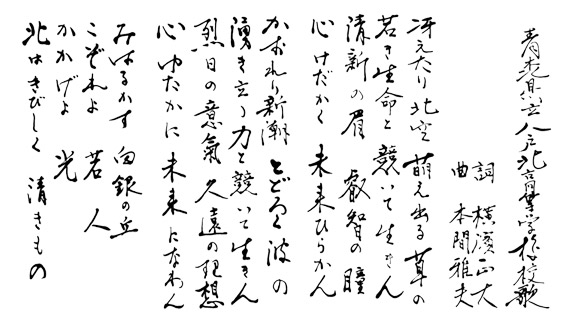 青森県立八戸北高等学校校歌
詞 横濱正大
曲 本間雅夫
冴えたり北空 萌え出る草の
若き生命と 競いて生きん
清新の眉 叡智の瞳
心けだかく 未来ひらかん
かおれり新潮 とどろく波の
湧き立つ力と競いて生きん
烈日の意氣 久遠の理想
心ゆたかに 未来になわん
みはるかす 白銀の丘
こぞれよ 若人
かかげよ 光
北はきびしく 清きもの